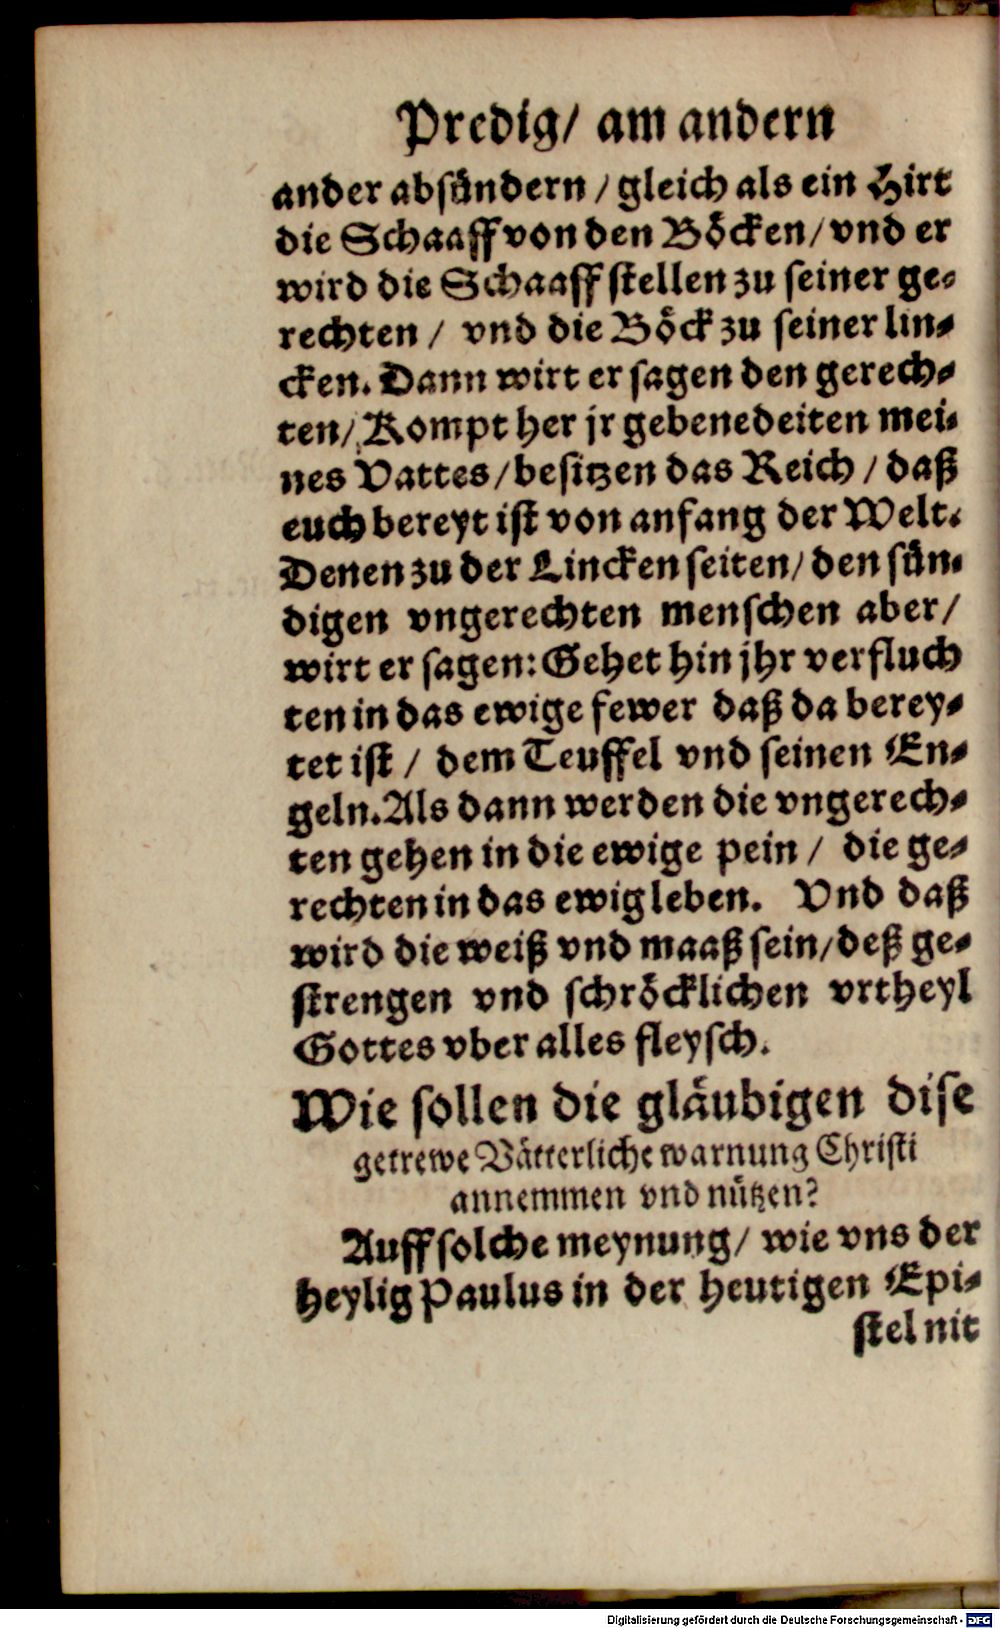 Predig/ am andern
ander absündern / gleich als ein Hirt
die Schaaff von den Böcken/ vnd er
wird die Schaaff stellen zu seiner ge-
rechten / vnd die Böck zu seiner lin-
cken. Dann wirt er sagen den gerech-
ten/ Kompt her jr gebenedeiten mei-
nes Vattes / besitzen das Reich / daß
euch bereyt ist von anfang der Welt.
Denen zu der Lincken seiten/ den sün-
digen vngerechten menschen aber/
wirt er sagen: Gehet hin jhr verfluch
ten in das ewige fewer daß da berey-
tet ist / dem Teuffel vnd seinen En-
geln. Als dann werden die vngerech-
ten gehen in die ewige pein / die ge-
rechten in das ewig leben. Vnd daß
wird die weiß vnd maaß sein/ deß ge-
strengen vnd schröcklichen vrtheyl
Gottes vber alles fleysch.
Wie sollen die gläubigen dise
getrewe Vätterliche warnung Christi
annemmen vnd nützen?
Auff solche meynung/ wie vns der
heylig Paulus in der heutigen Epi-
stel nit
Digitalisierung gefördert durch die Deutsche Forschungsgemeinschaft - DFG